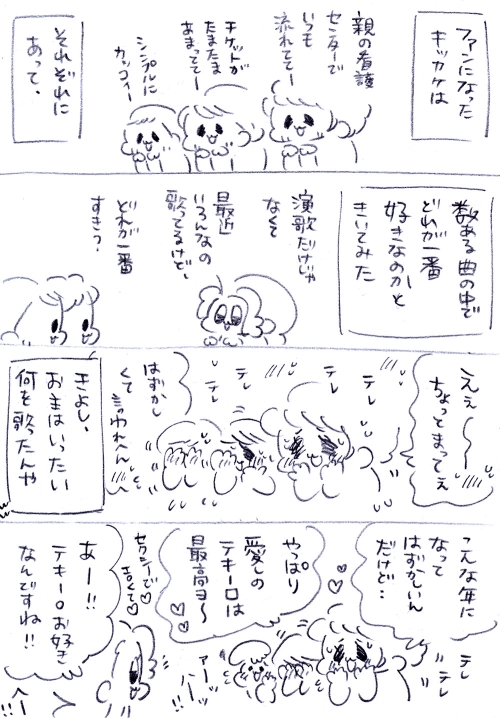 ファンになった
キッカケは
親の看護
センターで
いつも
流れててー
チケットが
たまたま
あまっててー
シンプルに
カッコイー
それぞれに
あって、
数ある曲の中で
どれが一番
好きなのかと
きいてみた
演歌だけじゃ
なくて
最近
いろんなの
歌ってるけど、
どれが一番
すき?
ええ〜〜
ちょっとまってぇ
テレ
テレ
テレ
テレ
はずかし
くて
言われへん
きよし、
お主はいったい
何を歌ったんや
こんな年に
なって
はずかしいん
だけど…
テレ
テレ
やっぱり
愛しの
テキーロは
最高ヨ〜
セクシーで
エロくて
あー!!
テキーロお好き
なんですね!!